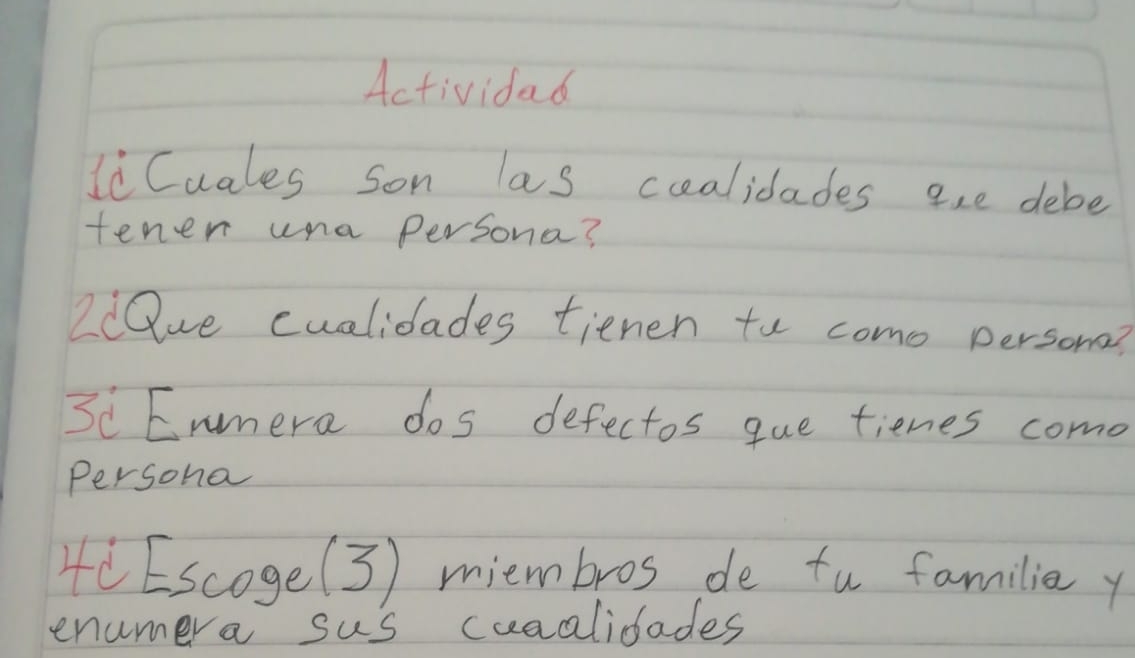 Actividad
1¿Cuales son las cualidades que debe
tener una persona?
2¿Que cualidades tienen tu como persona?
3¿ Enumera dos defectos que tienes como
persona
4¿Escoge(3) miembros de tu familia y
enumera sus cuaalidades